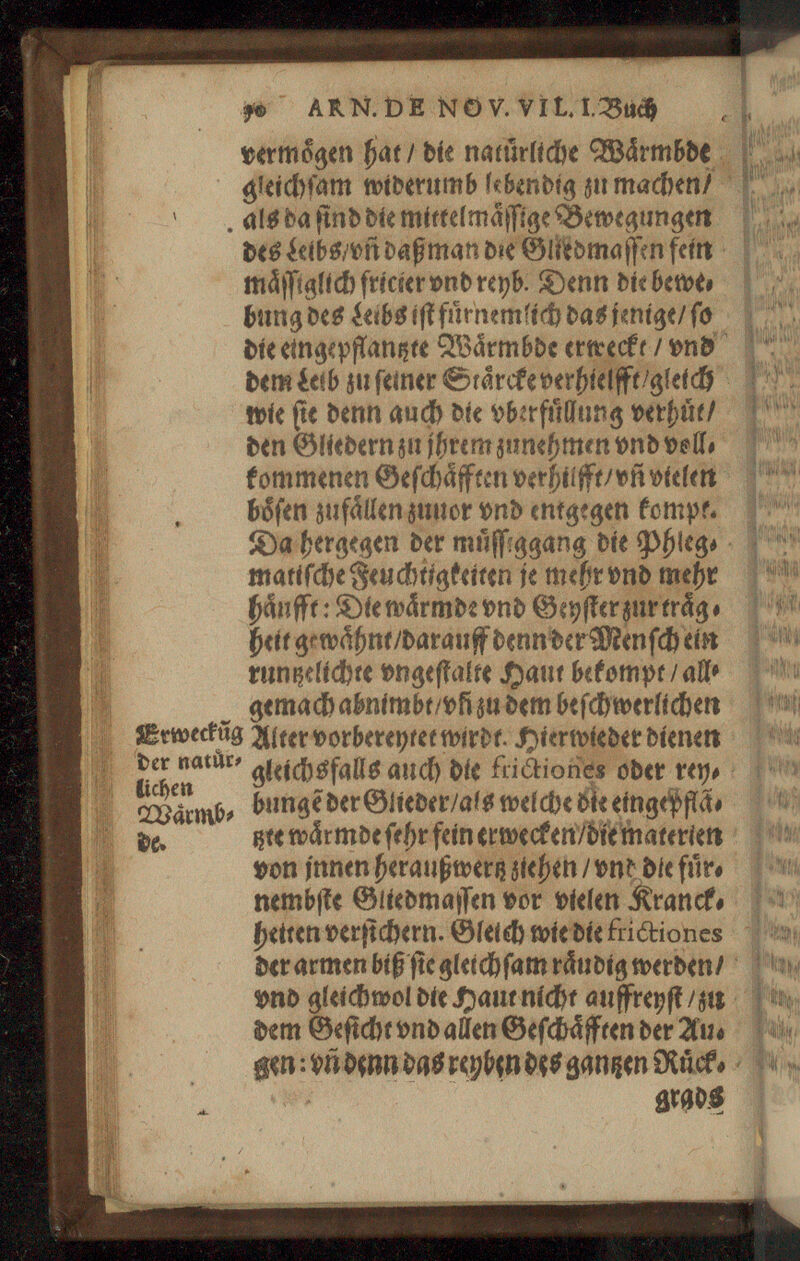 90 ARN. DE NOV. VIL. I. Buch
vermoͤgen hat / die natuͤrliche Waͤrmbde
gleichſam widerumb lebendig zu machen /
als da ſind die mittelmaͤſſige Bewegungen
des Leibs / vñ daß man die Gliedmaſſen fein
maͤſſiglich fricier vnd reyb. Denn die bewe⸗
bung des Leibs iſt fuͤrnemlich das jenige / ſo
die eingepflantzte Waͤrmbde erweckt / vnd
dem Leib zu ſeiner Staͤrcke verhielfft / gleich
wie ſie denn auch die vberfuͤllung verhuͤt /
den Gliedern zu jhrem zunehmen vnd voll⸗
kommenen Geſchaͤfften verhilfft / vñ vielen
boͤſen zufaͤllen zuuor vnd entgegen kompt.
Da hergegen der muͤſſiggang die Phleg⸗
matiſche Feuchtigkeiten je mehr vnd mehr
haͤufft : Die waͤrmde vnd Geyſter zur traͤg⸗
heit gewaͤhnt / darauff denn der Menſch ein
runtzelichte vngeſtalte Haut bekompt / all⸗
gemach abnimbt / vñ zu dem beſchwerlichen
Alter vorbereytet wirdt. Hierwieder dienen
gleichsfalls auch die frictiones oder rey⸗
bungẽ der Glieder / als welche die eingepflã⸗
tzte waͤrmde ſehr fein erwecken / die materien
von jnnen heraußwertz ziehen / vnd die fuͤr⸗
nembſte Gliedmaſſen vor vielen Kranck⸗
heiten verſichern. Gleich wie die frictiones
der armen biß ſie gleichſam raͤudig werden /
vnd gleichwol die Haut nicht auffreyſt / zu
dem Geſicht vnd allen Geſchaͤfften der Au⸗
gen : vñ denn das reyben des gantzen Ruͤck⸗
grads
Erweckũg
der natuͤr⸗
lichen
Waͤrmb⸗
de.